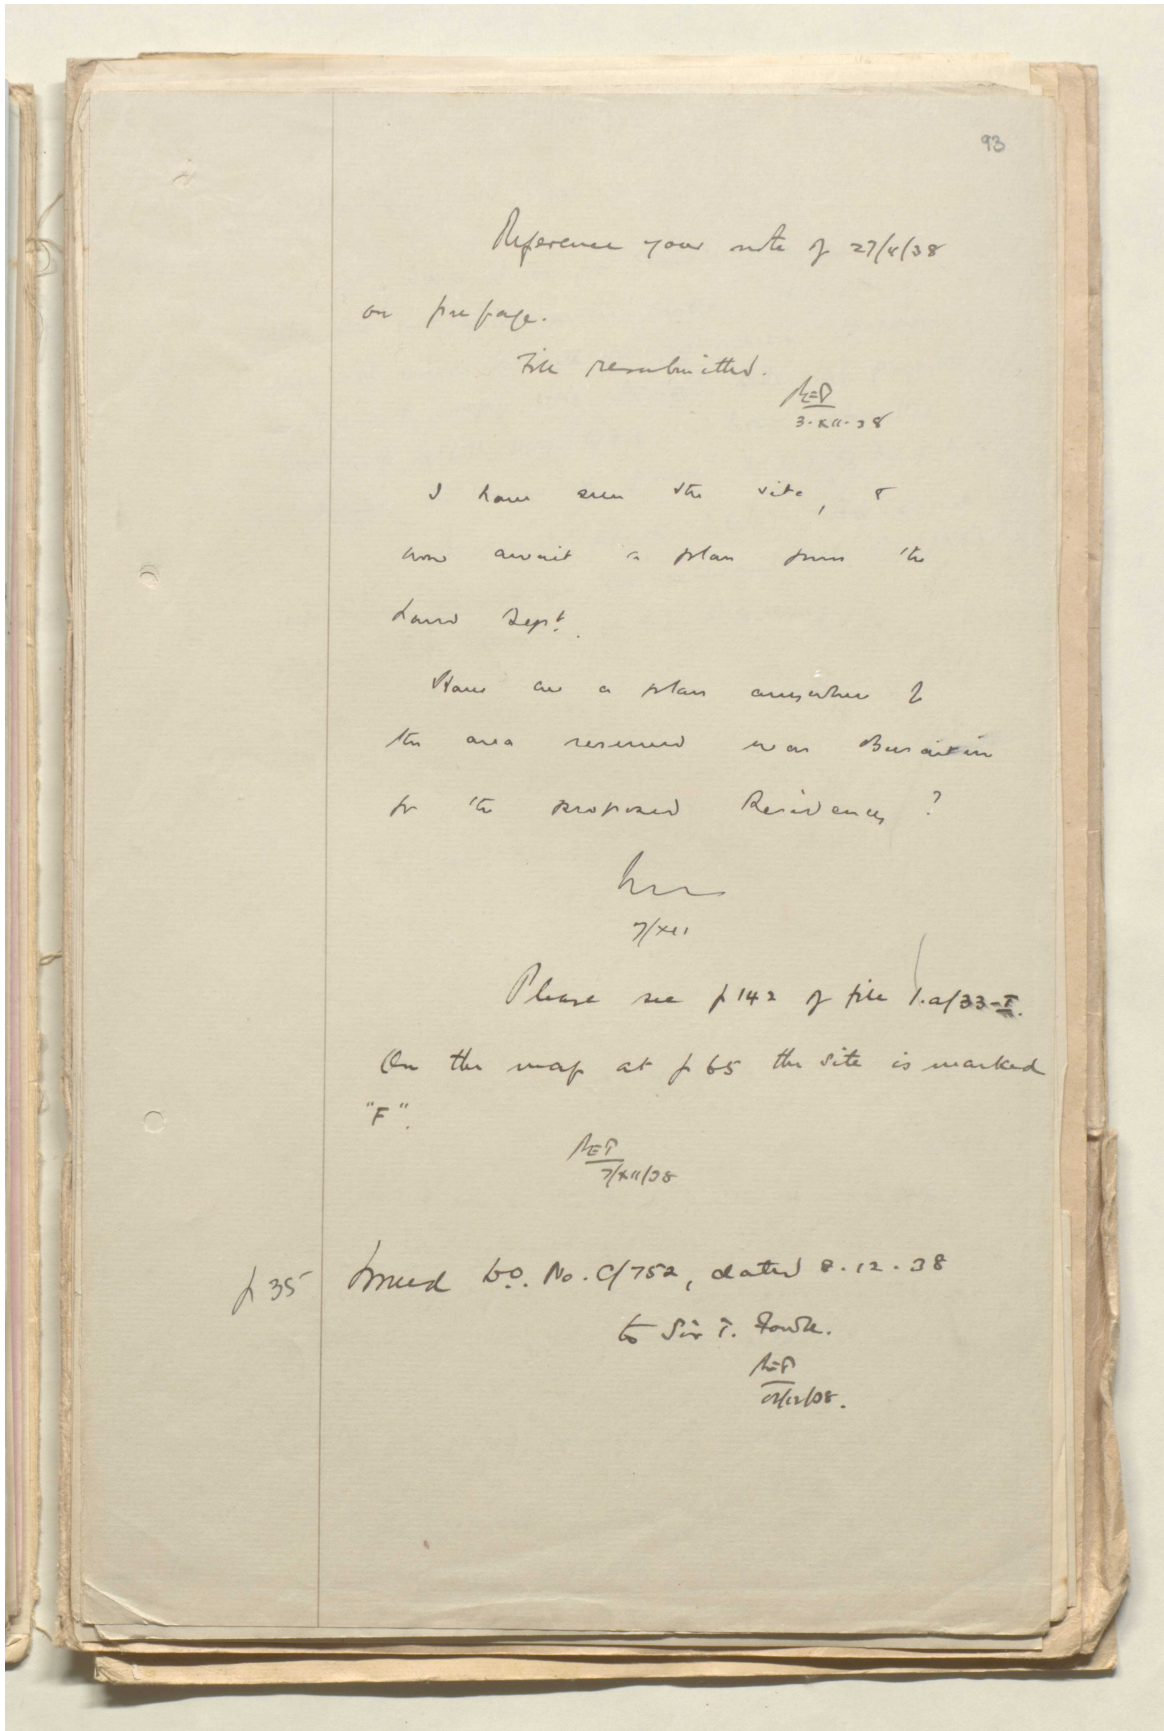 93
Reference your note of 27/4/38
on prepage.
File resubmitted.
3-XII-38
I have seen the site, &
now await a plan from the
Land Dept.
Have we a plan anywhere of
the area reserved near Busaitin
for the proposed Residency ?
7/XII
Please see p 142 of file 1.a/33-I.
On the map at p 65 the site is marked
"F".
7/XII/38
p 35 Issued D.O. No. C/752, dated 8.12.38
to Sir T. Fowle.